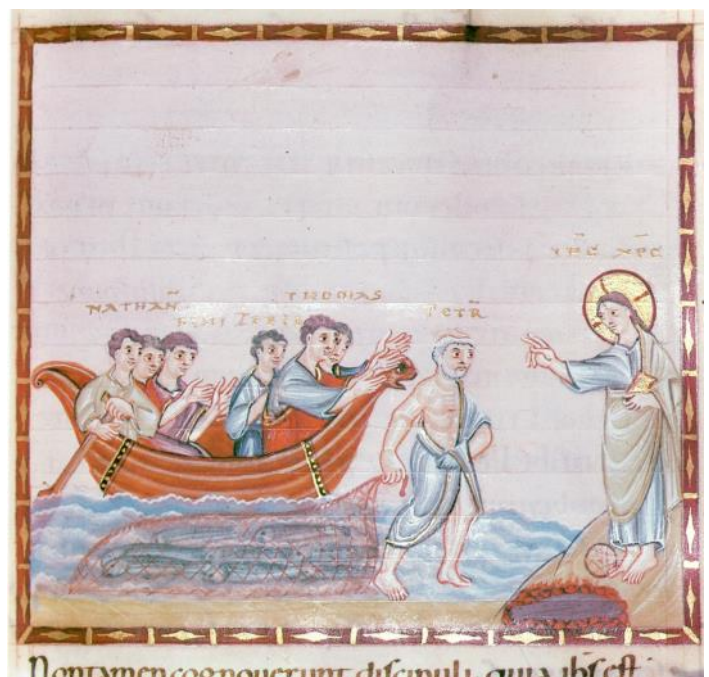 IHC XPC
THOMAS
NATHAN̄
FILII ZEBE
PETR̄
Non tamen cognoverunt discipuli quia ihs est